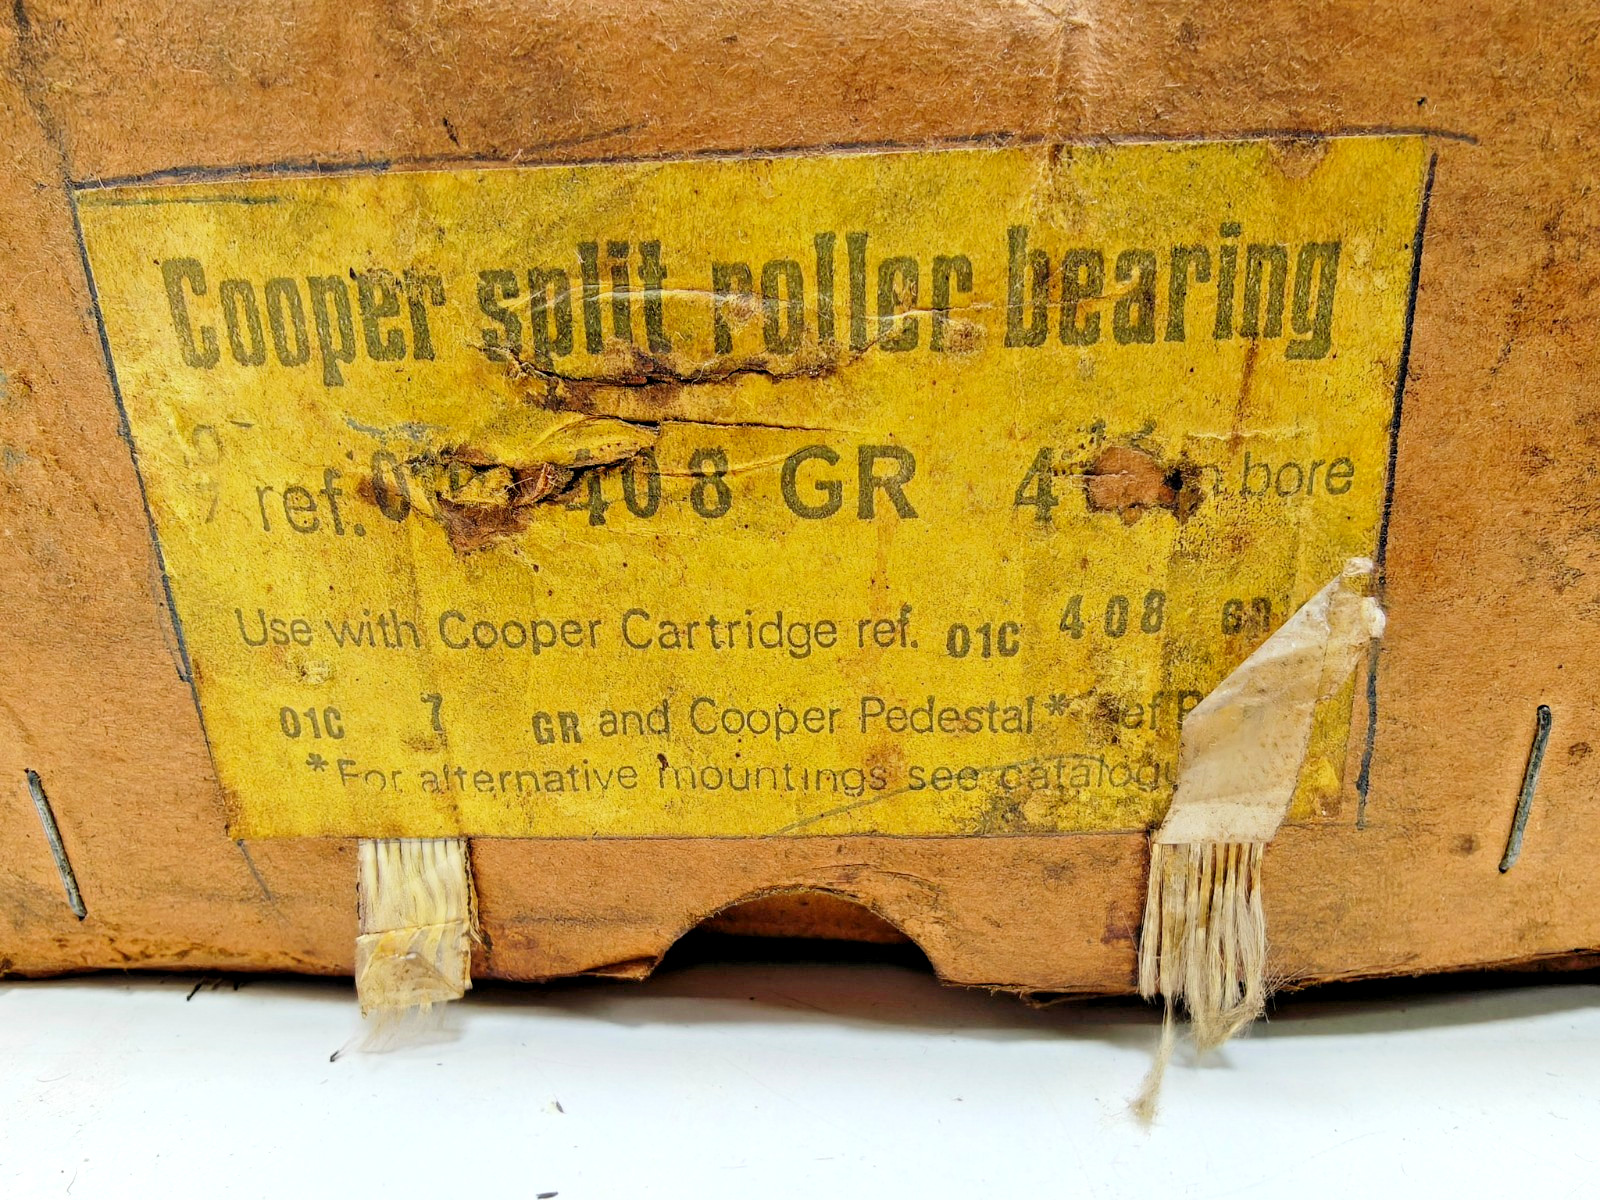 Cooper split roller bearing
ref. 408 GR 4 bore
Use with Cooper Cartridge ref. 01C 408 GR
01C 7 GR and Cooper Pedestal*
*For alternative mountings see